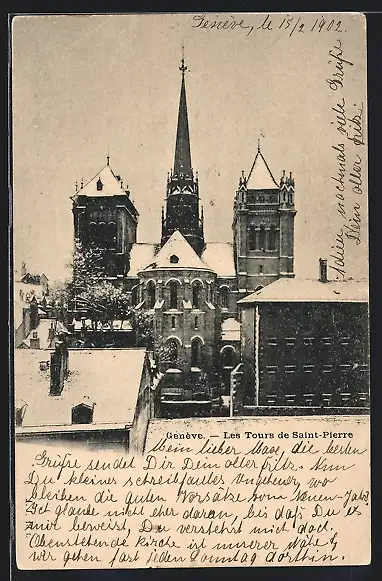 Genève, le 15/2 1902.
Adieu, nochmals viele Grüße
Dein alter Fritz.
Genève. – Les Tours de Saint-Pierre
Mein lieber Max, die besten
Grüße sendet Dir Dein alter Fritz. Nun
Du kleines schreibfaules Ungeheuer, wo
bleiben die guten Vorsätze vom neuen Jahr?
Ich glaube nicht eher daran, bis daß Du es
mir beweist, Du verstehst mich doch.
Obenstehende Kirche ist unserer
wir gehen fast jeden Sonntag dorthin.